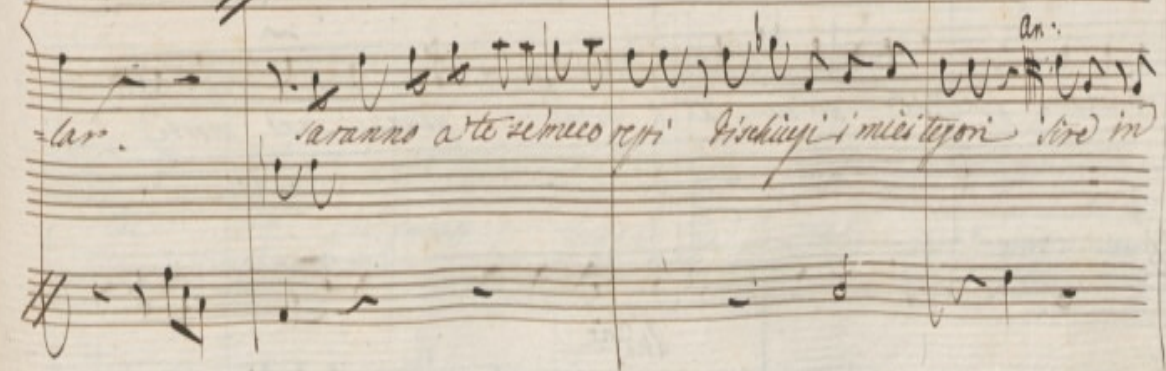 an:
=lar. saranno a te se meco resti dischiusi i miei tesori Sire in